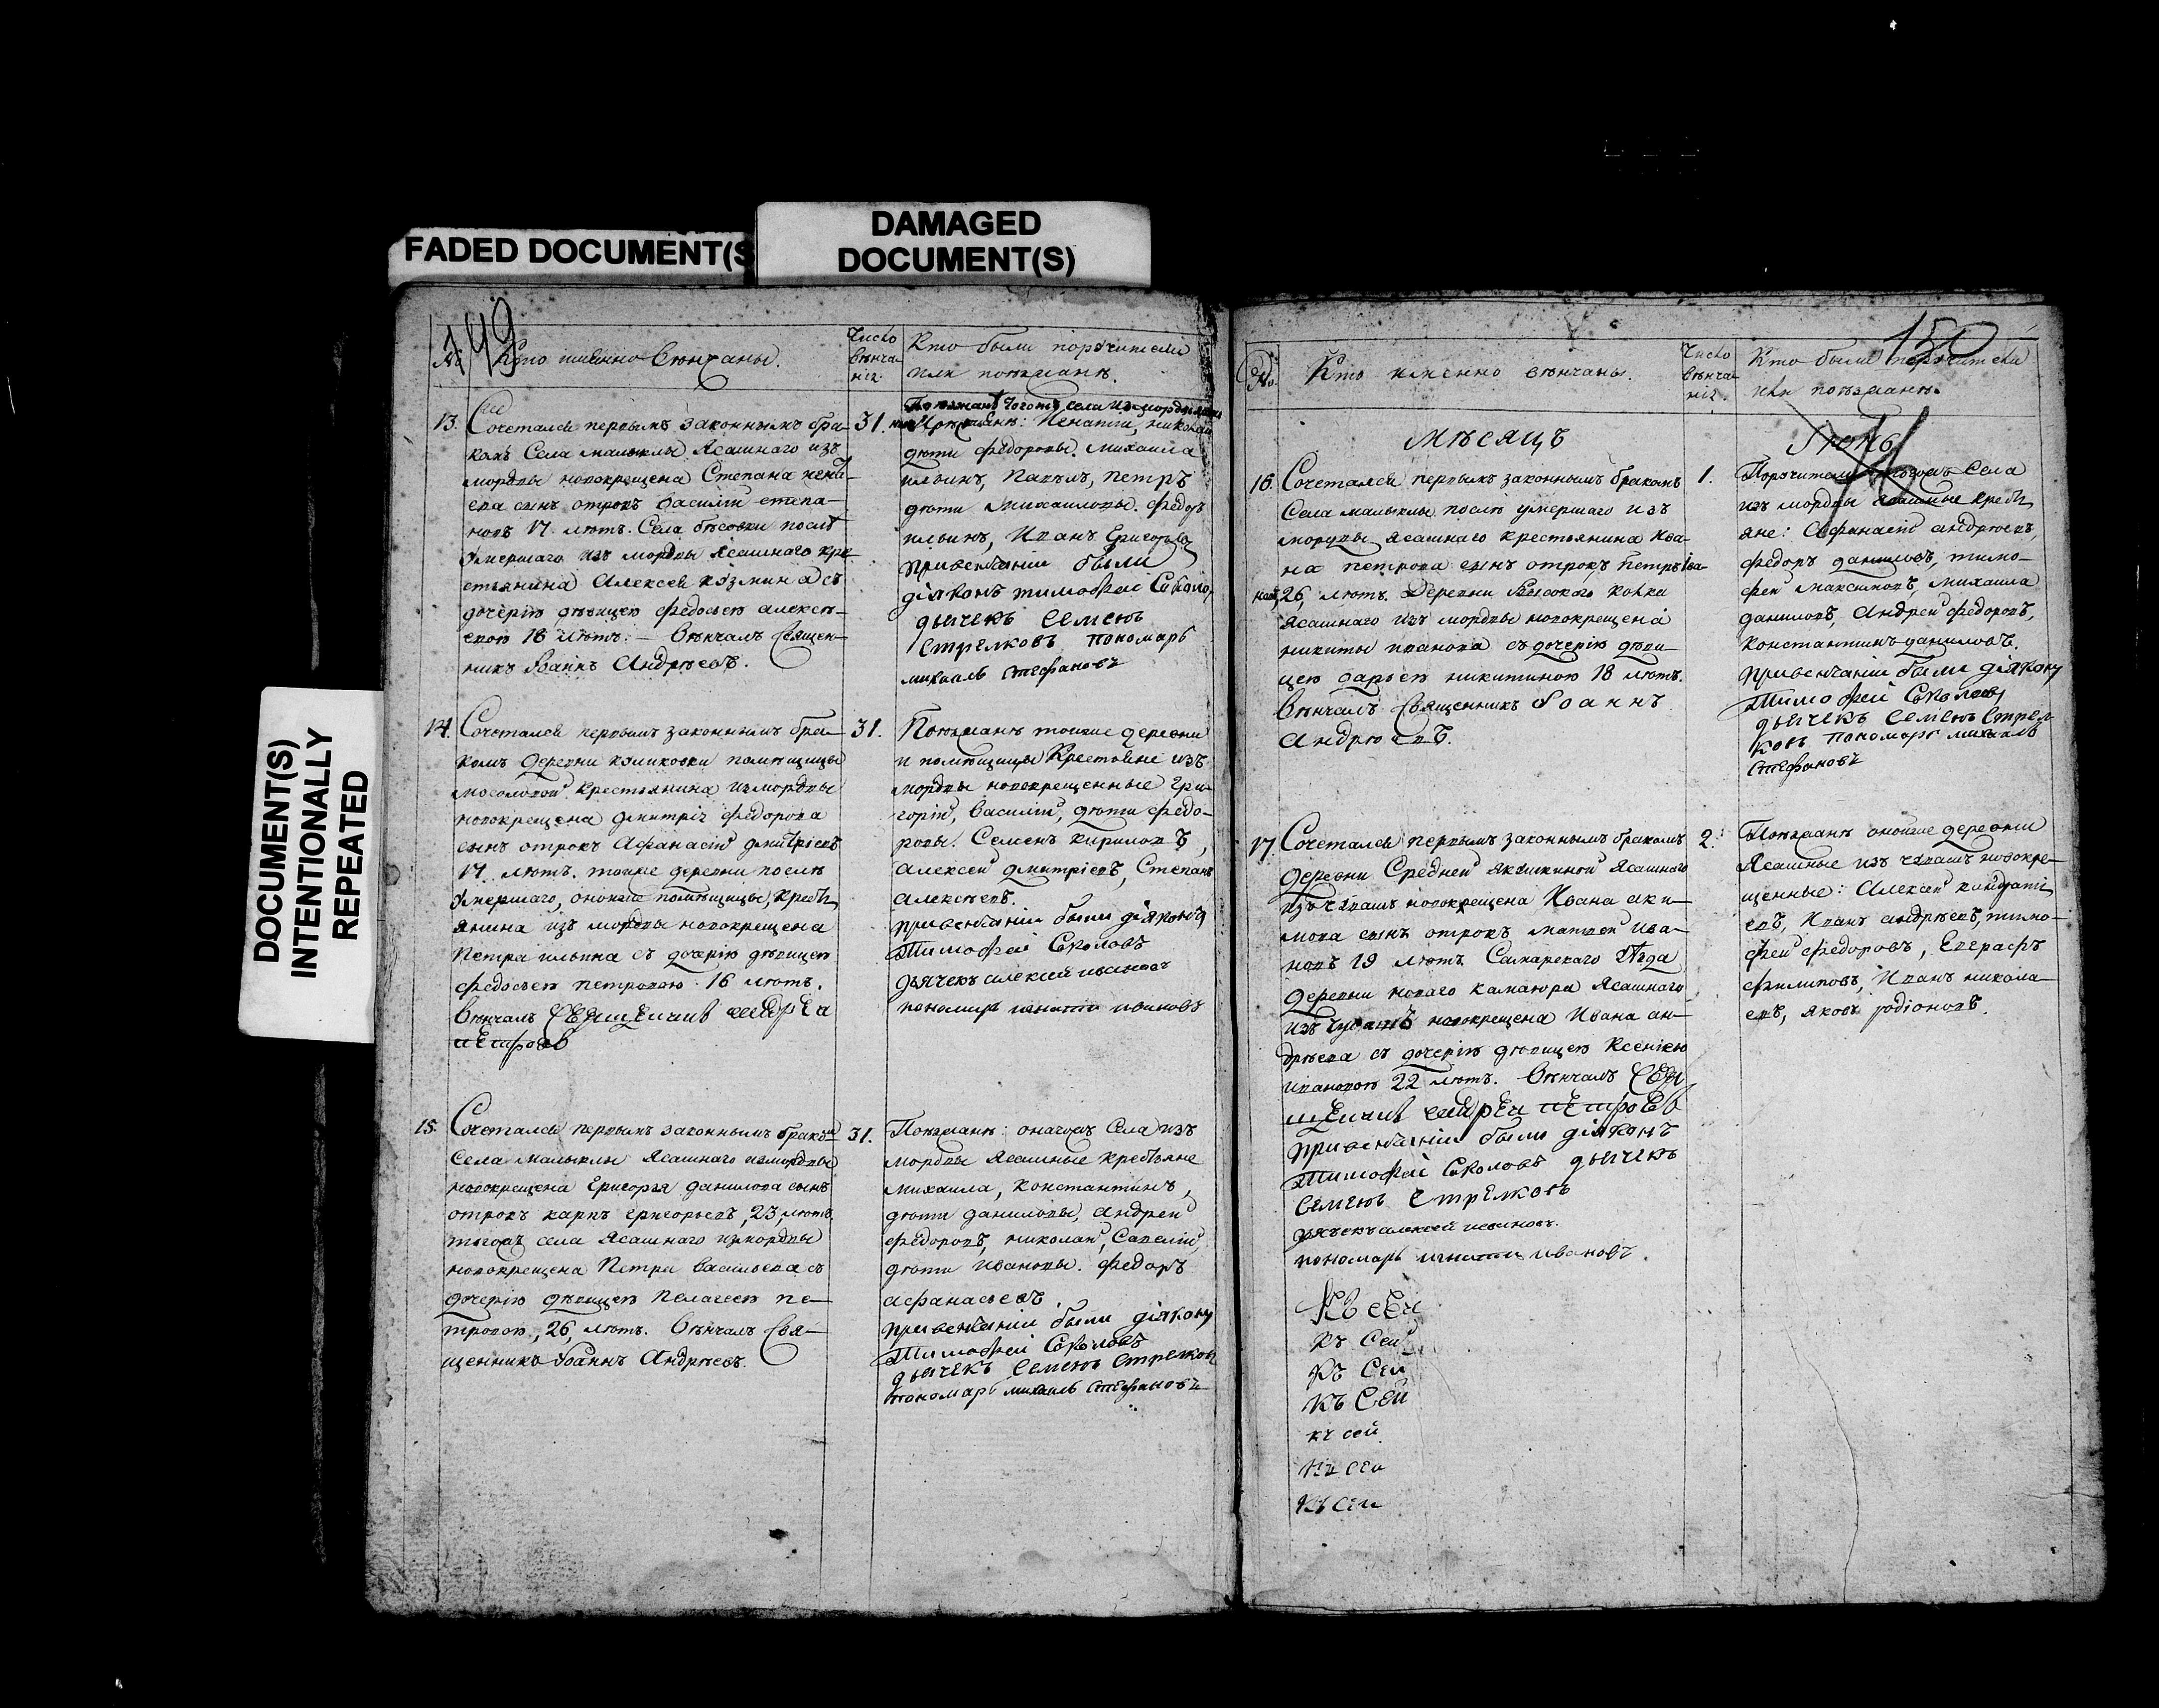 FADED DOCUMENT(S
DAMAGED
DOCUMENT(S)
DOCUMENT(S)
INTENTIONALLY
REPEATED
149
№
Кто имянно вѣнчаны.
Число
вѣнча-
нія
Кто были поручители
или поѣзжанѣ.
13.
Сочетался первымъ законнымъ бра-
комъ Села малыклы Ясашнаго изъ
мордвы новокрещена Степана
сынъ отрокъ василій степа-
новъ 17 лѣтъ. Села бѣсовки послѣ
умершаго изъ мордвы ясашнаго кре-
стьянина Алексея кузмина съ
дочерію дѣвицею федосьею алексѣ-
евою 18 лѣтъ: — Вѣнчалъ Священ-
никъ Іоаннъ Андрѣевъ.
31.
Поѣзжанѣ тогожъ села изъ мордвы
Игнатіи, николаи
дѣти федоровы. Михаила
ильинъ, Павелъ, петръ
дѣти михаиловы. Федоръ
ильинъ, Иванъ Григорьевъ
привенчаніи были
діяконъ тимофеи Соколо,
дьячекъ Семенъ
Стрелковъ пономарь
михаилъ стефановъ
14.
Сочетался первымъ законнымъ бра-
комъ деревни помѣщицы
мосоловой крестьянина изъ мордвы
новокрещена дмитрія федорова
сынъ отрокъ Афанасій дмитріевъ
17 лѣтъ. тоиже деревни послѣ
умершаго, оноиже помѣщицы, кресть
янина изъ мордвы новокрещена
Петра ильина съ дочерію дѣвицею
федосьею петровою 16 лѣтъ.
Вѣнчалъ Священникъ андреи
петровъ
31.
Поѣзжанѣ тоиже деревни
и помѣщицы крестьяне изъ
мордвы новокрещенные гри-
горій, василій, дѣти федо-
ровы. Семенъ кириловъ,
алексеи дмитріевъ, Степанъ
алексѣевъ.
привенчаніи были діяконъ
Тимофеи Соколовъ
дьячекъ алексей ивановъ
пономарь игнатіи ивановъ
15.
Сочетался первымъ законнымъ бракомъ
села малыклы Ясашнаго изъ мордвы
новокрещена Григорья данилова сынъ
отрокъ карпъ григорьевъ, 23, лѣтъ
тогожъ села Ясашнаго изъ мордвы
новокрещена Петра васильева съ
дочерію дѣвицею Пелагеею пе-
тровою, 26, лѣтъ. Вѣнчалъ Свя-
щенникъ Іоаннъ Андрѣевъ.
31.
Поѣзжанѣ: оногожъ Села изъ
мордвы Ясашные крестьяне
михаила, константинъ,
дѣти даниловы, андреи
федоровъ, николаи, Савелій,
дѣти ивановы. федоръ
афанасьевъ
привенчаніи были діяконъ
Тимофеи Соколовъ
дьячекъ Семенъ стрелковъ
пономарь михаилъ стефановъ
150
№
Кто имянно вѣнчаны.
Число
вѣнча-
нія.
Кто были поручители
или поѣзжанѣ.
Мѣсяцъ
Іюнь
16.
Сочетался первымъ законнымъ бракомъ
Села малыклы послѣ умершаго изъ
мордвы Ясашнаго крестьянина Ива-
на петрова сынъ отрокъ петръ ива-
новъ, 26, лѣтъ. Деревни Высокого колка
Ясашнаго изъ мордвы новокрещена
никиты иванова съ дочерію дѣви-
цею дарьею никитиною 18 лѣтъ.
Вѣнчалъ Священникъ Іоаннъ
Андрѣевъ.
1.
Поручители тогожъ Села
изъ мордвы Ясашные кресть
яне: Афанасій андрѣевъ,
федоръ даниловъ, тимо-
феи максимовъ, михаила
даниловъ, Андреи федоровъ,
константинъ даниловъ.
привенчаніи были діяконъ
Тимофеи Соколовъ
дьячекъ Семенъ Стрел
ковъ пономарь михаилъ
стефановъ
17.
Сочетался первымъ законнымъ бракомъ
деревни Средней Якушкиной Ясашнаго
изъ чувашъ новокрещена Ивана аки-
мова сынъ отрокъ матвеи ива-
новъ 19 лѣтъ. Самарскаго уѣзда
деревни новаго Ясашнаго
изъ чувашъ новокрещена Ивана ан-
дрѣева съ дочерію дѣвицею Ксеніею
ивановою 22 лѣтъ. Вѣнчалъ Свя
щенникъ андреи петровъ
привенчаніи были діяконъ
Тимофеи Соколовъ дьячекъ
Семенъ Стрелковъ
дьячекъ алексей ивановъ.
пономарь игнатіи ивановъ.
Къ сеи
къ Сеи
Къ Сеи
Къ Сеи
къ сеи
Къ сеи
Къ сеи
2.
Поѣзжанѣ оноиже деревни
Ясашные изъ чувашъ новокре-
щенные: Алексеи кондрати
евъ, Иванъ андрѣевъ, тимо-
феи федоровъ, Евграфъ
филиповъ, Иванъ никола-
евъ, яковъ родіоновъ.